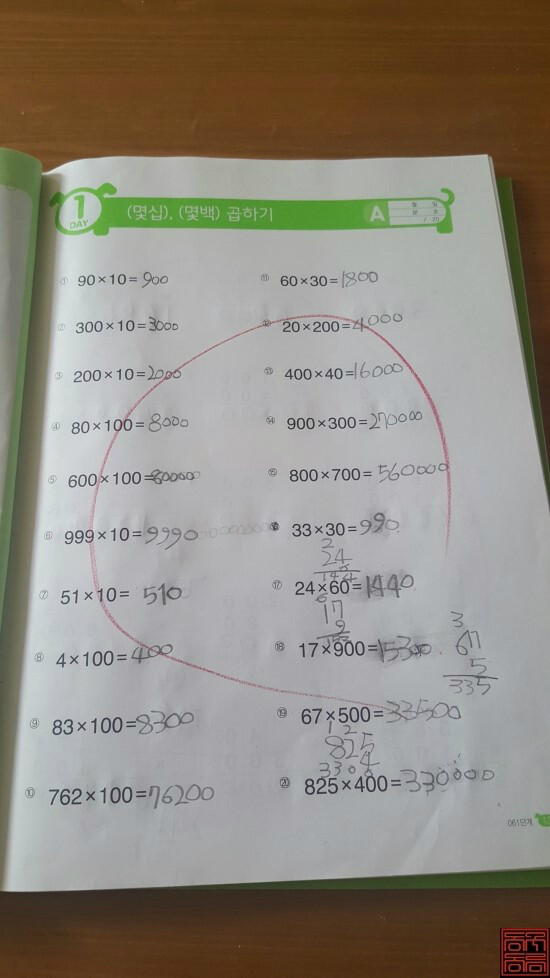 1
DAY
(몇십), (몇백) 곱하기
A
월 일
분 초
/ 20
① 90×10=900
② 300×10=3000
③ 200×10=2000
④ 80×100=8000
⑤ 600×100=
⑥ 999×10=9990
⑦ 51×10= 510
⑧ 4×100=400
⑨ 83×100=8300
⑩ 762×100=76200
⑪ 60×30=1800
⑫ 20×200=4000
⑬ 400×40=16000
⑭ 900×300=270000
⑮ 800×700=560000
⑯ 33×30=990
2
24
⑰ 24×60=1440
6
17
9
153
⑱ 17×900=15300
3
67
5
335
⑲ 67×500=33500
1 2
825
4
3300
⑳ 825×400=330000
061단계